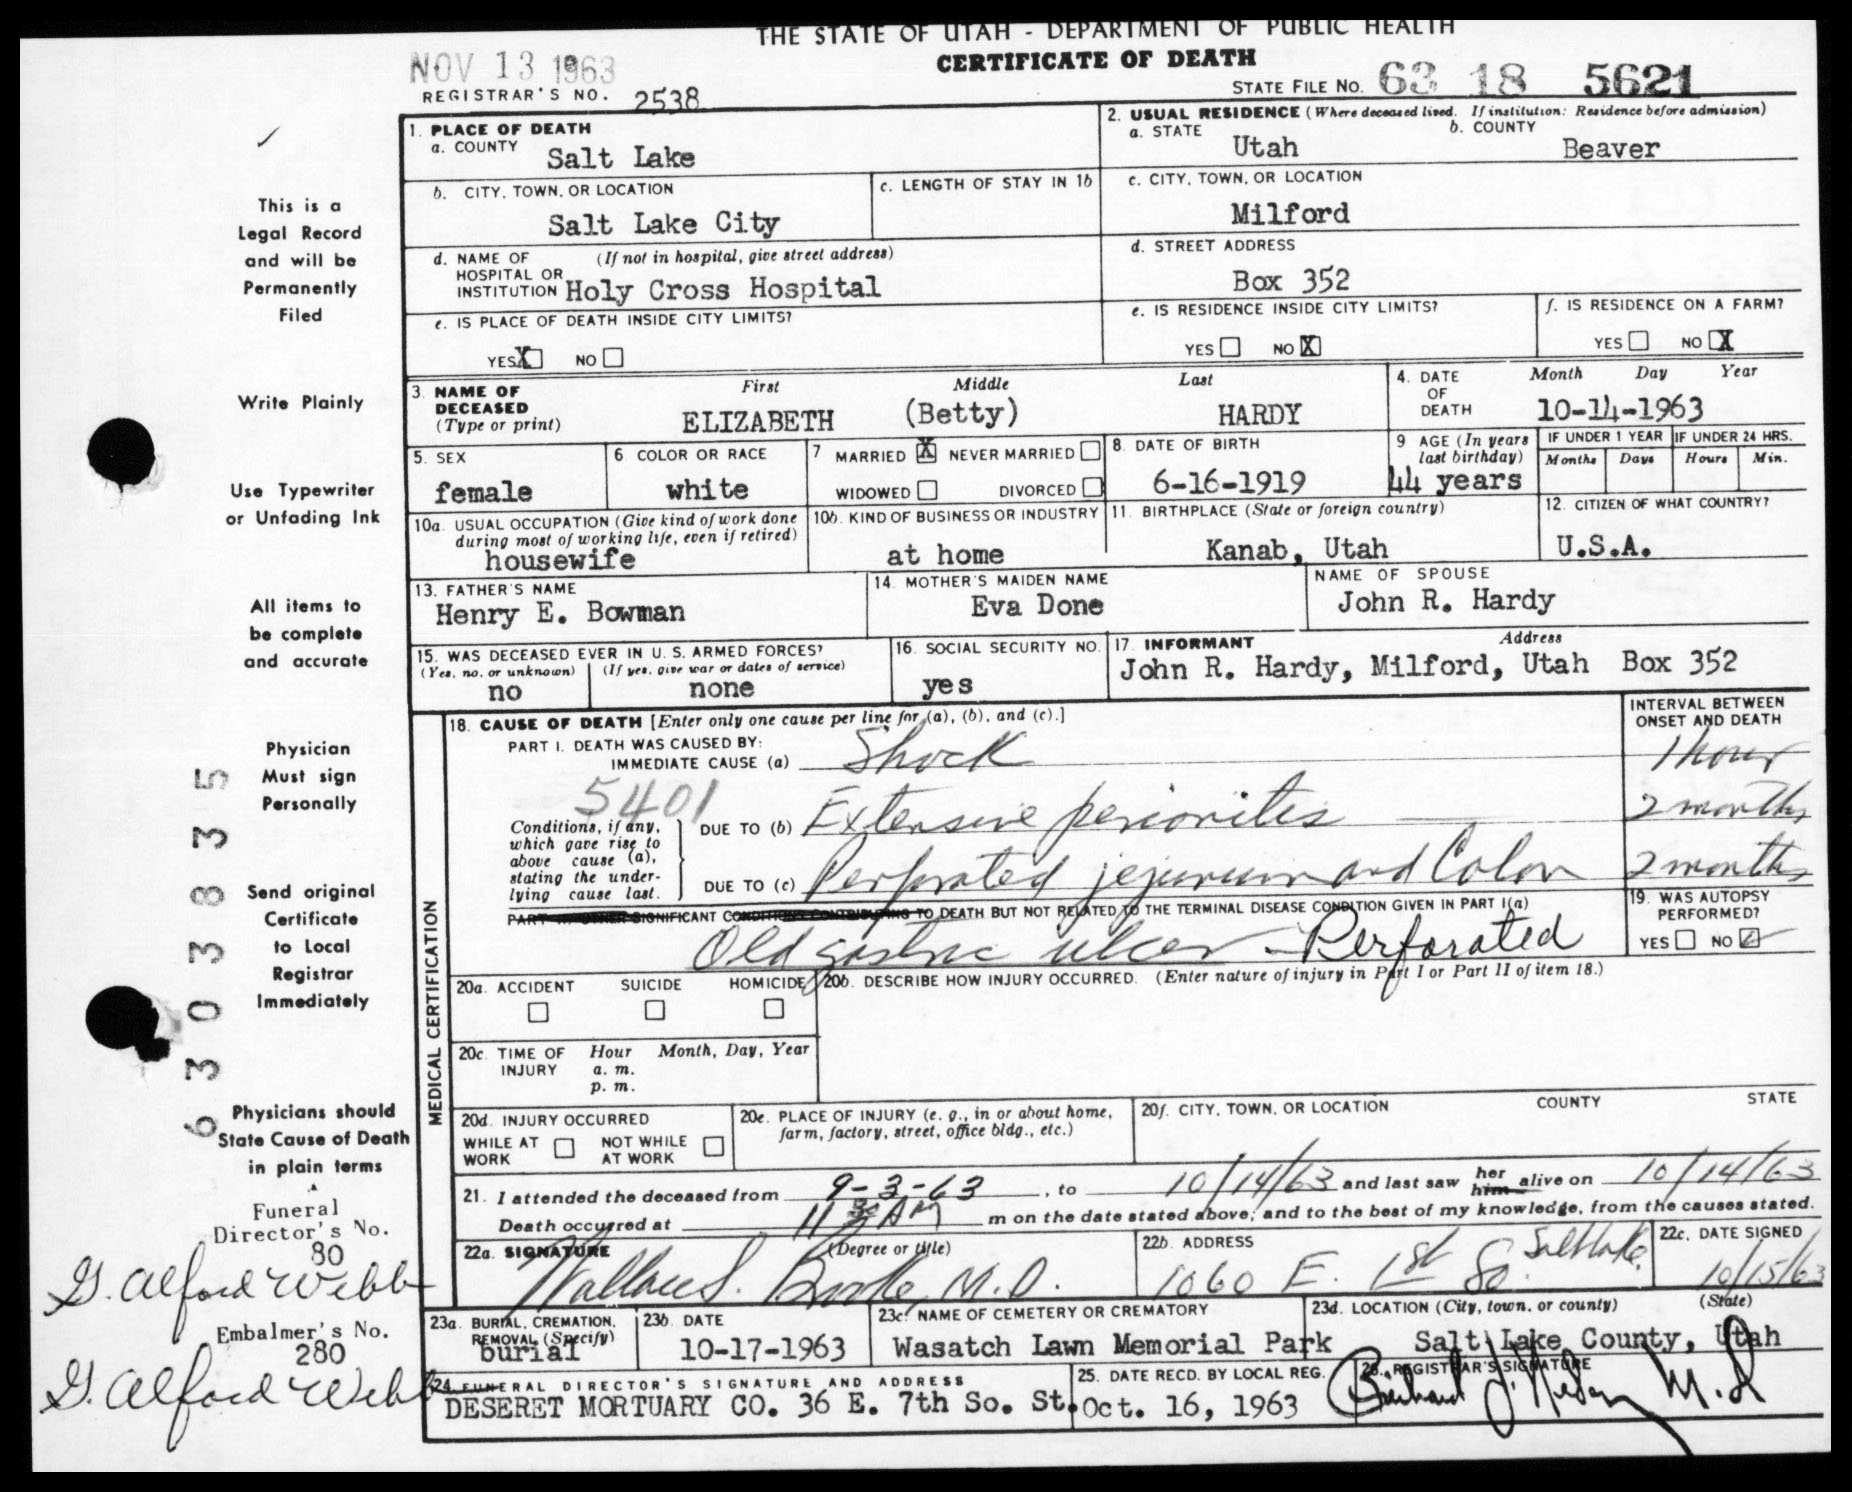 THE STATE OF UTAH - DEPARTMENT OF PUBLIC HEALTH
CERTIFICATE OF DEATH
NOV 13 1963
REGISTRAR'S NO. 2538
STATE FILE NO. 63 18 5621
This is a
Legal Record
and will be
Permanently
Filed
Write Plainly
Use Typewriter
or Unfading Ink
All items to
be complete
and accurate
Physician
Must sign
Personally
Send original
Certificate
to Local
Registrar
Immediately
Physicians should
State Cause of Death
in plain terms
6 3 0 3 3 8 3 3 5
Funeral
Director's No.
80
G. Alford Webb
Embalmer's No.
280
G. Alford Webb
1. PLACE OF DEATH
a. COUNTY Salt Lake
2. USUAL RESIDENCE (Where deceased lived. If institution: Residence before admission)
a. STATE Utah b. COUNTY Beaver
b. CITY, TOWN, OR LOCATION Salt Lake City
c. LENGTH OF STAY IN 1b
c. CITY, TOWN, OR LOCATION Milford
d. NAME OF (If not in hospital, give street address)
HOSPITAL OR
INSTITUTION Holy Cross Hospital
d. STREET ADDRESS Box 352
e. IS PLACE OF DEATH INSIDE CITY LIMITS?
YES X NO
e. IS RESIDENCE INSIDE CITY LIMITS?
YES NO X
f. IS RESIDENCE ON A FARM?
YES NO X
3. NAME OF DECEASED (Type or print)
First Middle Last
ELIZABETH (Betty) HARDY
4. DATE OF DEATH Month Day Year
10-14-1963
5. SEX female
6. COLOR OR RACE white
7 MARRIED X NEVER MARRIED
WIDOWED DIVORCED
8. DATE OF BIRTH 6-16-1919
9 AGE (In years last birthday) 44 years
IF UNDER 1 YEAR Months Days
IF UNDER 24 HRS. Hours Min.
10a. USUAL OCCUPATION (Give kind of work done
during most of working life, even if retired)
housewife
10b. KIND OF BUSINESS OR INDUSTRY at home
11. BIRTHPLACE (State or foreign country) Kanab, Utah
12. CITIZEN OF WHAT COUNTRY? U.S.A.
13. FATHER'S NAME Henry E. Bowman
14. MOTHER'S MAIDEN NAME Eva Done
NAME OF SPOUSE John R. Hardy
15. WAS DECEASED EVER IN U. S. ARMED FORCES?
(Yes, no, or unknown) (If yes, give war or dates of service)
no none
16. SOCIAL SECURITY NO. yes
17. INFORMANT Address
John R. Hardy, Milford, Utah Box 352
MEDICAL CERTIFICATION
18. CAUSE OF DEATH [Enter only one cause per line for (a), (b), and (c).]
INTERVAL BETWEEN
ONSET AND DEATH
PART I. DEATH WAS CAUSED BY:
IMMEDIATE CAUSE (a) Shock 1 hour
5401
Conditions, if any,
which gave rise to
above cause (a),
stating the under-
lying cause last.
DUE TO (b) Extensive perionites 2 months
DUE TO (c) Perforated jejunum and Colon 2 months
PART II. OTHER SIGNIFICANT CONDITIONS CONTRIBUTING TO DEATH BUT NOT RELATED TO THE TERMINAL DISEASE CONDITION GIVEN IN PART I(a)
Old gastric ulcer - Perforated
19. WAS AUTOPSY
PERFORMED?
YES NO
20a. ACCIDENT SUICIDE HOMICIDE
20b. DESCRIBE HOW INJURY OCCURRED. (Enter nature of injury in Part I or Part II of item 18.)
20c. TIME OF INJURY Hour Month, Day, Year
a. m.
p. m.
20d. INJURY OCCURRED
WHILE AT WORK NOT WHILE AT WORK
20e. PLACE OF INJURY (e. g., in or about home,
farm, factory, street, office bldg., etc.)
20f. CITY, TOWN, OR LOCATION COUNTY STATE
21. I attended the deceased from 9-3-63, to 10/14/63 and last saw her him alive on 10/14/63
Death occurred at 11 30 AM m on the date stated above; and to the best of my knowledge, from the causes stated.
22a. SIGNATURE (Degree or title)
Wallace S. Brooke M.D.
22b. ADDRESS 1060 E. 1st So. Salt Lake.
22c. DATE SIGNED 10/15/63
23a. BURIAL, CREMATION,
REMOVAL (Specify)
burial
23b. DATE 10-17-1963
23c. NAME OF CEMETERY OR CREMATORY
Wasatch Lawn Memorial Park
23d. LOCATION (City, town, or county) (State)
Salt Lake County, Utah
24. FUNERAL DIRECTOR'S SIGNATURE AND ADDRESS
DESERET MORTUARY CO. 36 E. 7th So. St.
25. DATE RECD. BY LOCAL REG.
Oct. 16, 1963
26. REGISTRAR'S SIGNATURE
M.D